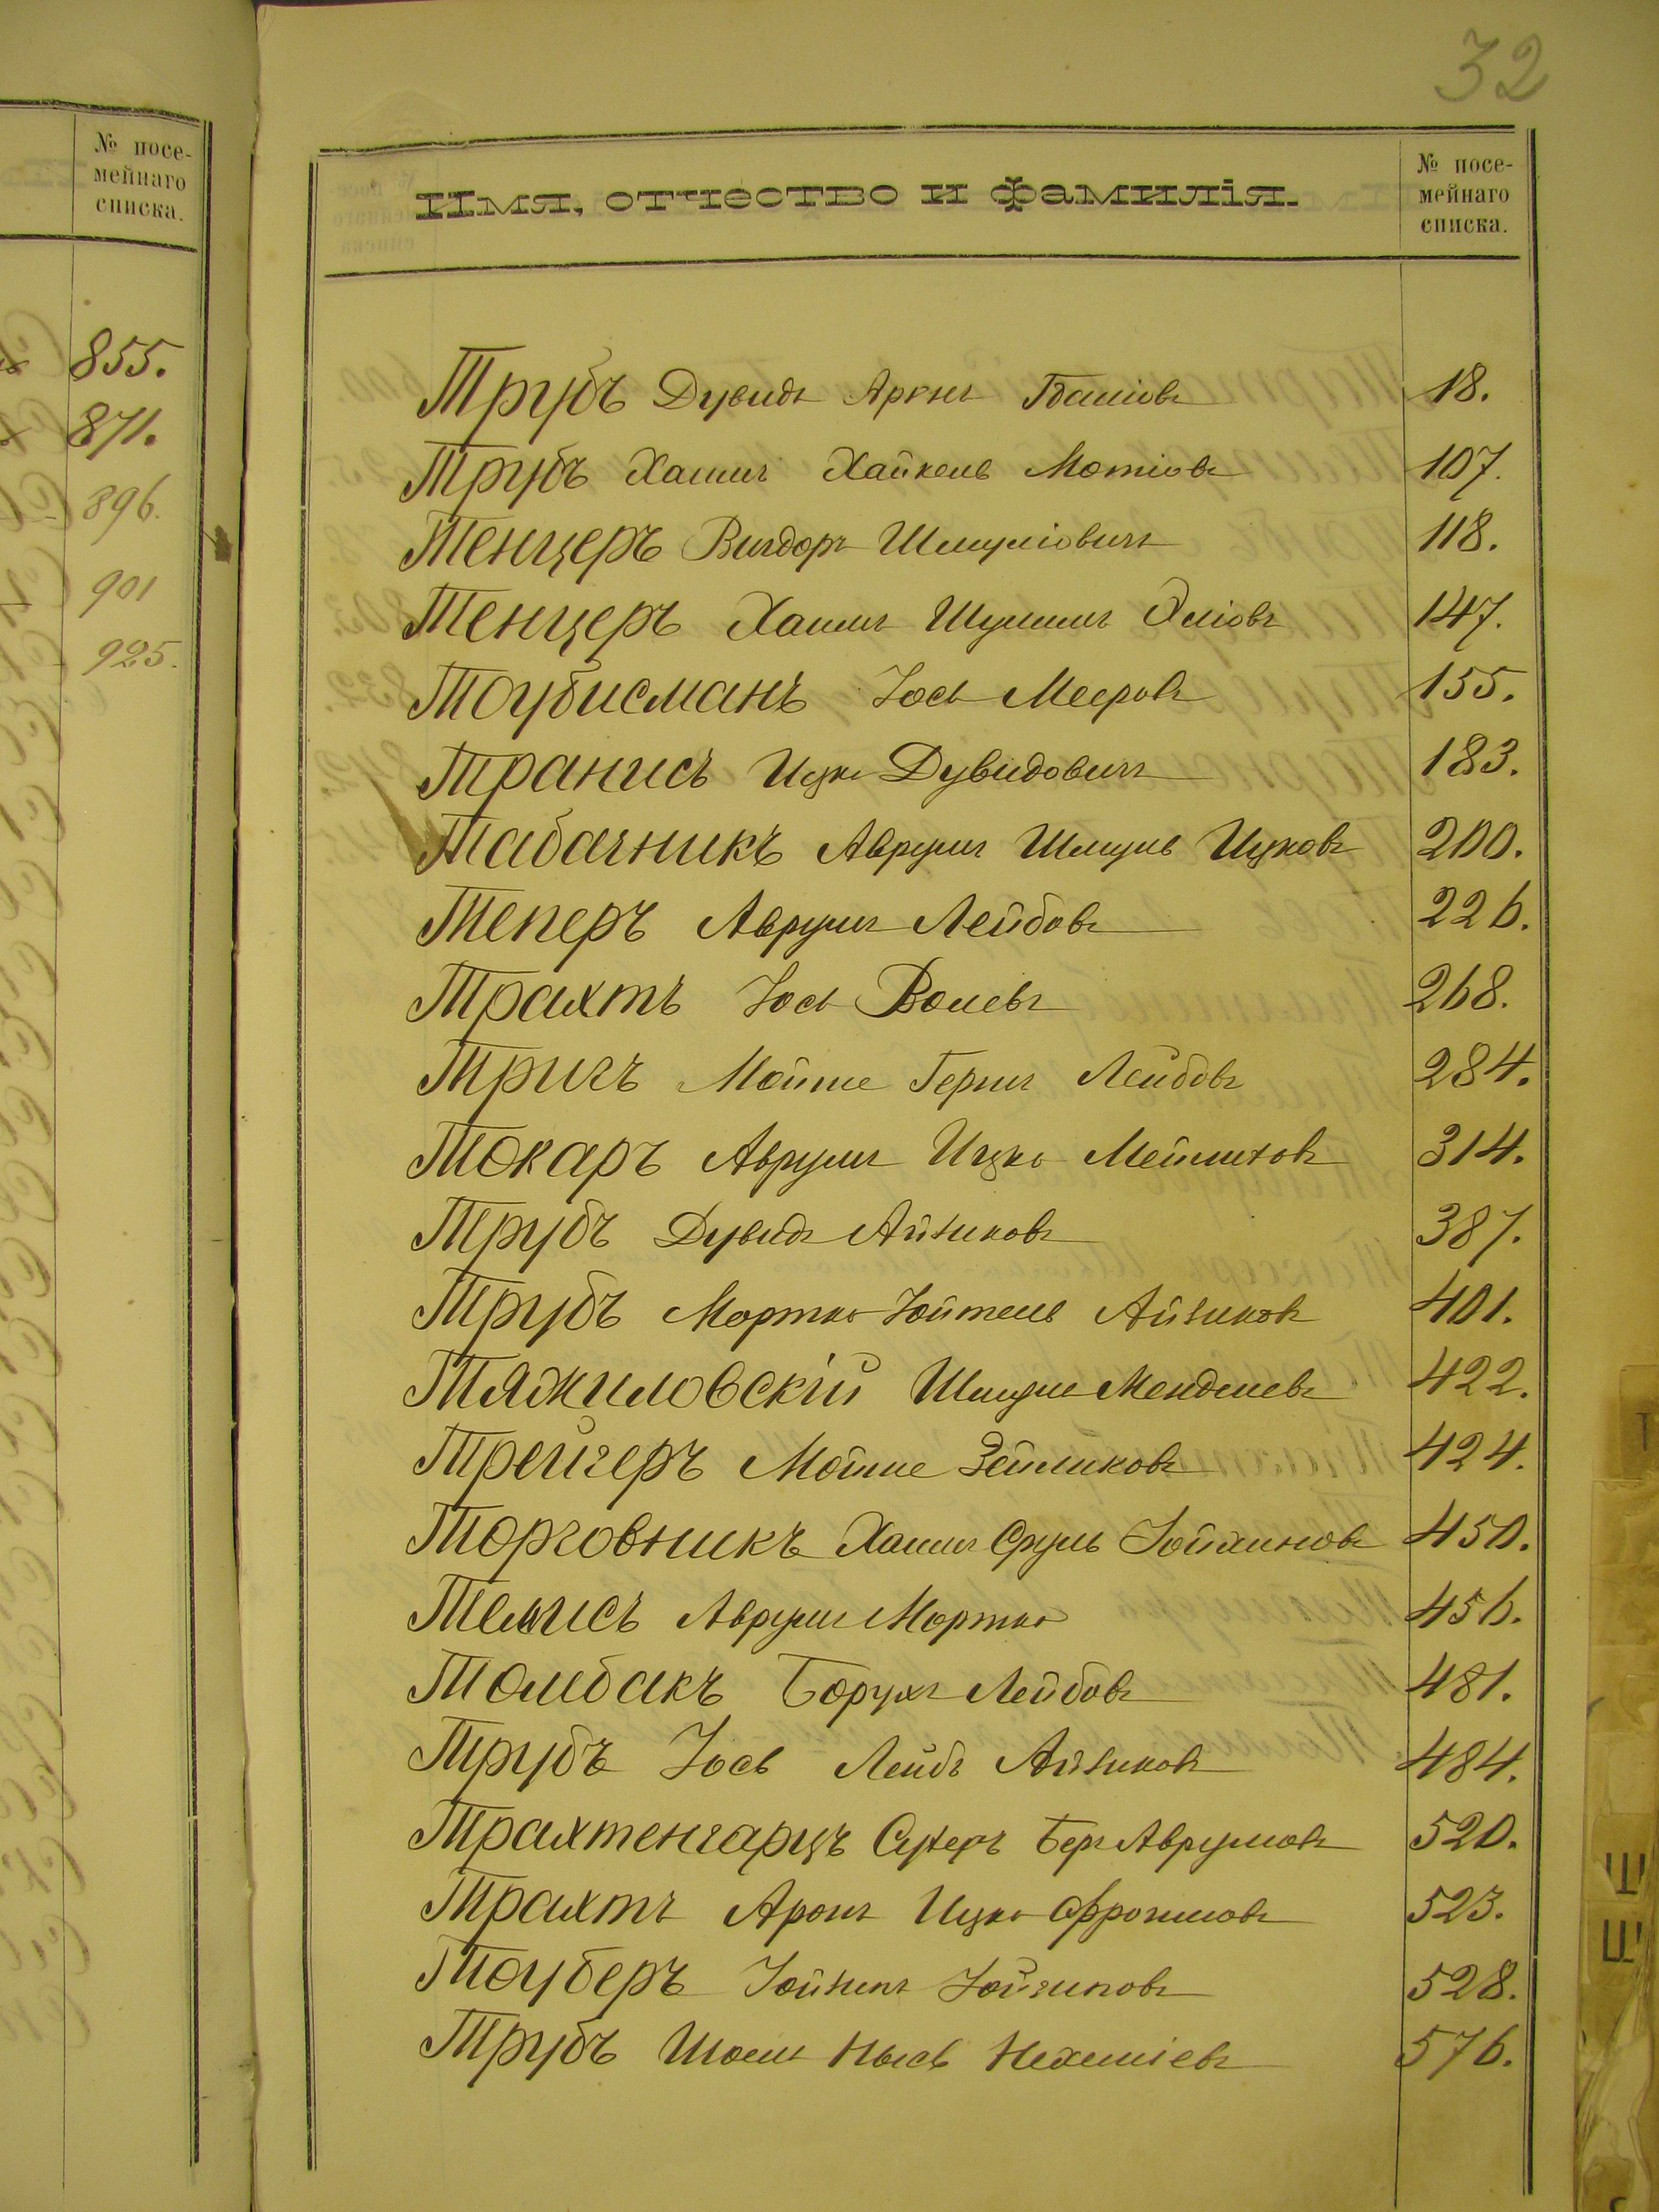 32
№ посе-
мейнаго
списка.
855.
871.
896.
901
925.
Имя, отчество и фамилія.
№ посе-
мейнаго
списка.
Трубъ Дувидъ Аронъ 18.
Трубъ Хаимъ Хайкель Мотіовъ 107.
Тенцеръ Вигдоръ Шмуліовичъ 118.
Тенцеръ Хаимъ Шулимъ Эліовъ 147.
Таубисманъ Іось Мееровъ 155.
Транисъ Ицко Дувидовичъ 183.
Табачникъ Аврумъ Шмуль Ицковъ 200.
Теперъ Аврумъ Лейбовъ 226.
Трахтъ Іось Волевъ 268.
Тригъ Мойше Гершъ Лейбовъ 284.
Токаръ Аврумъ Ицко Мейлиховъ 314.
Трубъ Дувидъ Айзиковъ 387.
Трубъ Мортко Іойтель Айзиковъ 401.
Тяжиловскій Шмуль Менделевъ 422.
Трейгеръ Мойше Зейликовъ 424.
Торговникъ Хаимъ Сруль Іойхиновъ 450.
Аврумъ Мортко 456.
Толмбакъ Борухъ Лейбовъ 481.
Трубъ Іось Лейбъ Айзиковъ 484.
Трахтенгарцъ Берг Аврумовъ 520.
Трахтъ Аронъ Ицко Фроимовъ 523.
Тауберъ 528.
Трубъ Шоель Нысь Нехеміевъ 576.